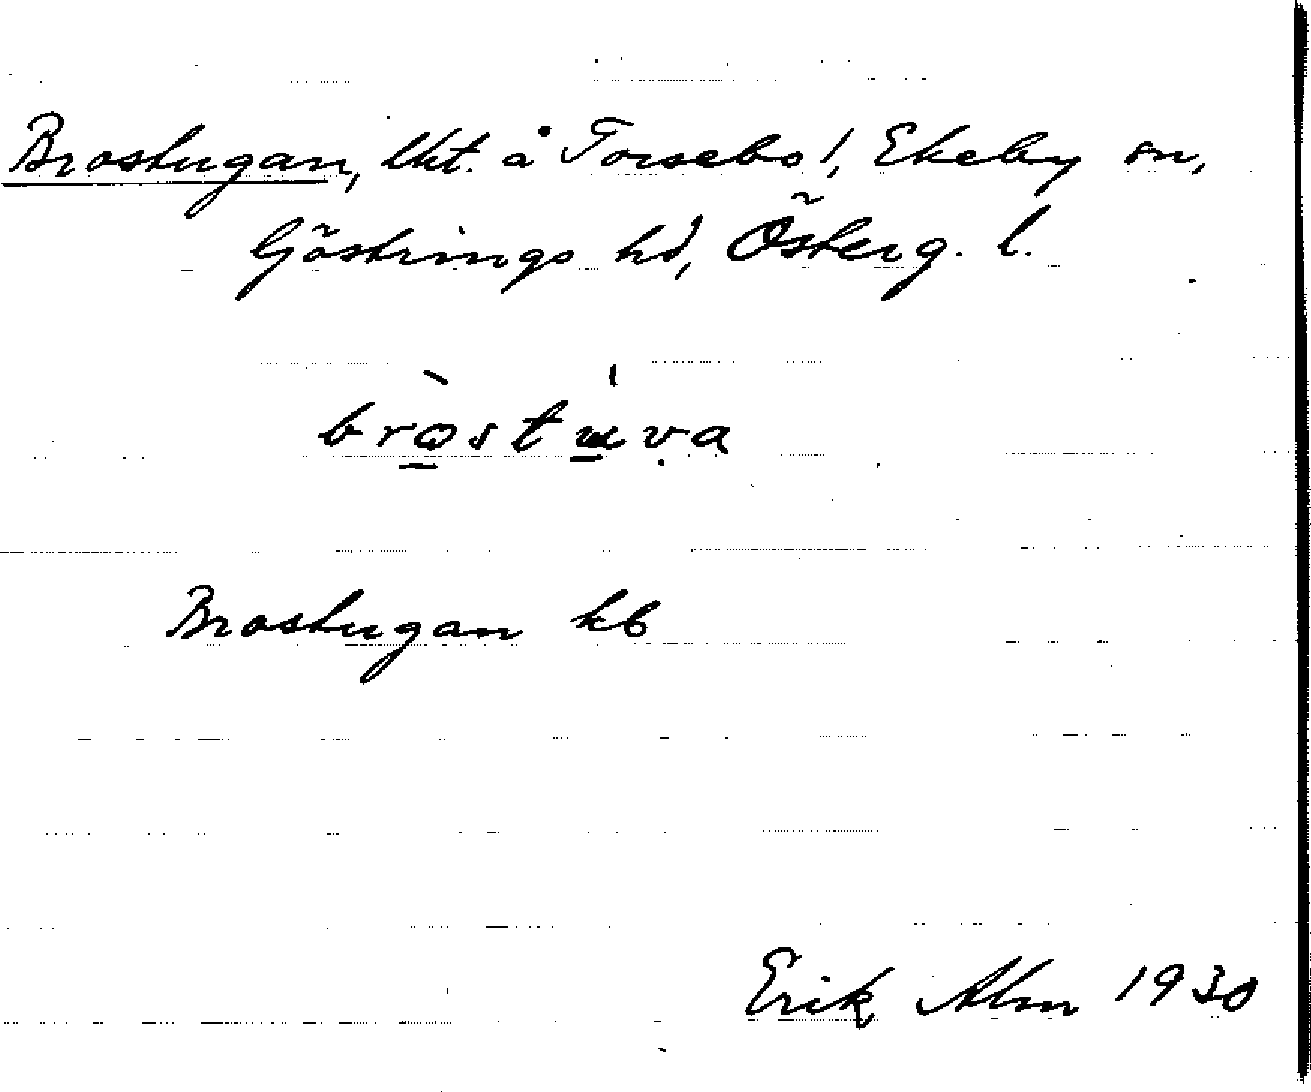 Brostugan, lht. å Torsebo!, Ekeby sn,
Göstrings hd, Österg. l.
bròstúva
Brostugan kb
Erik Alm 1930